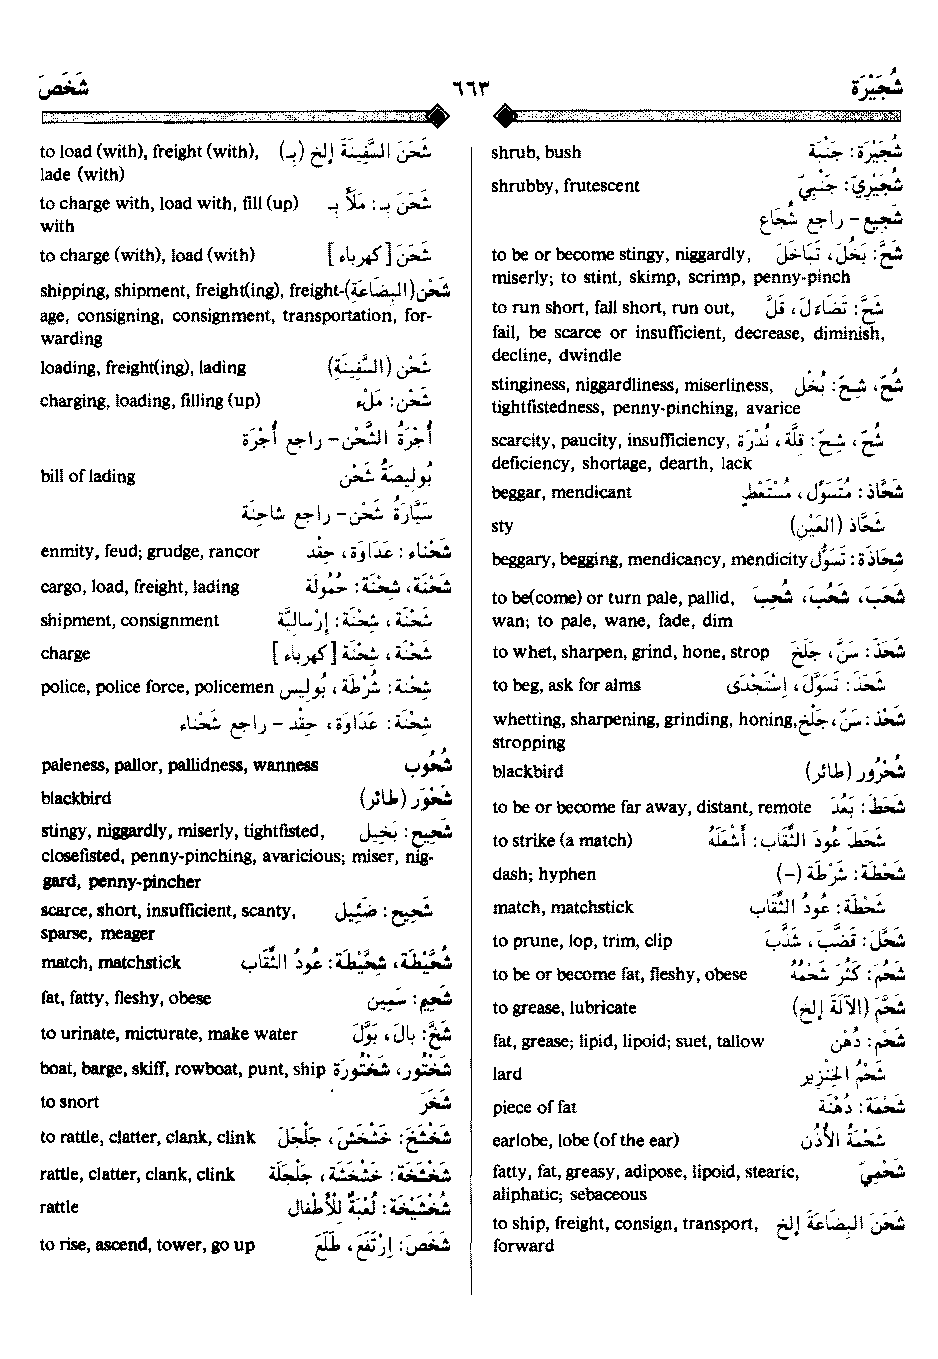 شُجَيْرَة ٦٦٣ شَخَصَ
شُجَيْرَة : جَنْبَة shrub, bush
شُجَيْرِيّ : جَنْبِيّ shrubby, frutescent
شَجِيع - راجع شُجَاع
شَحَّ : بَخُلَ ، تَبَاخَلَ to be or become stingy, niggardly,
miserly; to stint, skimp, scrimp, penny-pinch
شَحَّ : تَضَاءَلَ ، قَلَّ to run short, fall short, run out,
fail, be scarce or insufficient, decrease, diminish,
decline, dwindle
شُحّ ، شِحّ : بُخْل stinginess, niggardliness, miserliness,
tightfistedness, penny-pinching, avarice
شُحّ ، شِحّ : قِلَّة ، نُدْرَة scarcity, paucity, insufficiency,
deficiency, shortage, dearth, lack
شَحَّاذ : مُتَسَوِّل ، مُسْتَعْطٍ beggar, mendicant
شَحَّاذ (العَيْن) sty
شِحَاذَة : تَسَوُّل beggary, begging, mendicancy, mendicity
شَحَبَ ، شَحُبَ ، شُحِبَ to be(come) or turn pale, pallid,
wan; to pale, wane, fade, dim
شَحَذَ : سَنَّ ، جَلَخَ to whet, sharpen, grind, hone, strop
شَحَذَ : تَسَوَّلَ ، اِسْتَجْدَى to beg, ask for alms
شَحْذ : سَنّ ، جَلْخ whetting, sharpening, grinding, honing,
stropping
شُحْرُور (طائر) blackbird
شَحَطَ : بَعُدَ to be or become far away, distant, remote
شَحَطَ عُودَ الثِّقَاب : أَشْعَلَهُ to strike (a match)
شَحْطَة : شَرْطَة (–) dash; hyphen
شَحْطَة : عُودُ الثِّقَاب match, matchstick
شَحَلَ : قَضَّبَ ، شَذَّبَ to prune, lop, trim, clip
شَحُمَ : كَثُرَ شَحْمُهُ to be or become fat, fleshy, obese
شَحَّمَ (الآلَةَ إلخ) to grease, lubricate
شَحْم : دُهْن fat, grease; lipid, lipoid; suet, tallow
شَحْمُ الخِنْزِير lard
شَحْمَة : دُهْنَة piece of fat
شَحْمَةُ الأُذُن earlobe, lobe (of the ear)
شَحْمِيّ fatty, fat, greasy, adipose, lipoid, stearic,
aliphatic; sebaceous
شَحَنَ البِضَاعَةَ إلخ to ship, freight, consign, transport,
forward
شَحَنَ السَّفِينَةَ إلخ (بـ) to load (with), freight (with),
lade (with)
شَحَنَ بـ : مَلَأَ بـ to charge with, load with, fill (up)
with
شَحَنَ [كهرباء] to charge (with), load (with)
شَحْن (البِضَاعَة) shipping, shipment, freight(ing), freight-
age, consigning, consignment, transportation, for-
warding
شَحْن (السَّفِينَة) loading, freight(ing), lading
شَحْن : مَلْء charging, loading, filling (up)
أُجْرَةُ الشَّحْن - راجع أُجْرَة
بُولِيصَةُ شَحْن bill of lading
سَيَّارَةُ شَحْن - راجع شاحِنَة
شَحْنَاء : عَدَاوَة ، حِقْد enmity, feud; grudge, rancor
شَحْنَة ، شِحْنَة : حُمُولَة cargo, load, freight, lading
شَحْنَة ، شِحْنَة : إِرْسَالِيَّة shipment, consignment
شَحْنَة ، شِحْنَة [كهرباء] charge
شِحْنَة : شُرْطَة ، بُولِيس police, police force, policemen
شِحْنَة : عَدَاوَة ، حِقْد - راجع شَحْناء
شُحُوب paleness, pallor, pallidness, wanness
شَحْوَر (طائر) blackbird
شَحِيح : بَخِيل stingy, niggardly, miserly, tightfisted,
closefisted, penny-pinching, avaricious; miser, nig-
gard, penny-pincher
شَحِيح : ضَئِيل scarce, short, insufficient, scanty,
sparse, meager
شَحِّيطَة ، شَحَّيْطَة : عُودُ الثِّقَاب match, matchstick
شَحِيم : سَمِين fat, fatty, fleshy, obese
شَخَّ : بالَ ، بَوَّلَ to urinate, micturate, make water
شَخْتُور ، شَخْتُورَة boat, barge, skiff, rowboat, punt, ship
شَخَرَ to snort
شَخْشَخَ : خَشْخَشَ ، جَلْجَلَ to rattle, clatter, clank, clink
شَخْشَخَة : خَشْخَشَة ، جَلْجَلَة rattle, clatter, clank, clink
شُخْشَيْخَة : لُعْبَةٌ لِلأَطْفال rattle
شَخَصَ : اِرْتَفَعَ ، طَلَعَ to rise, ascend, tower, go up